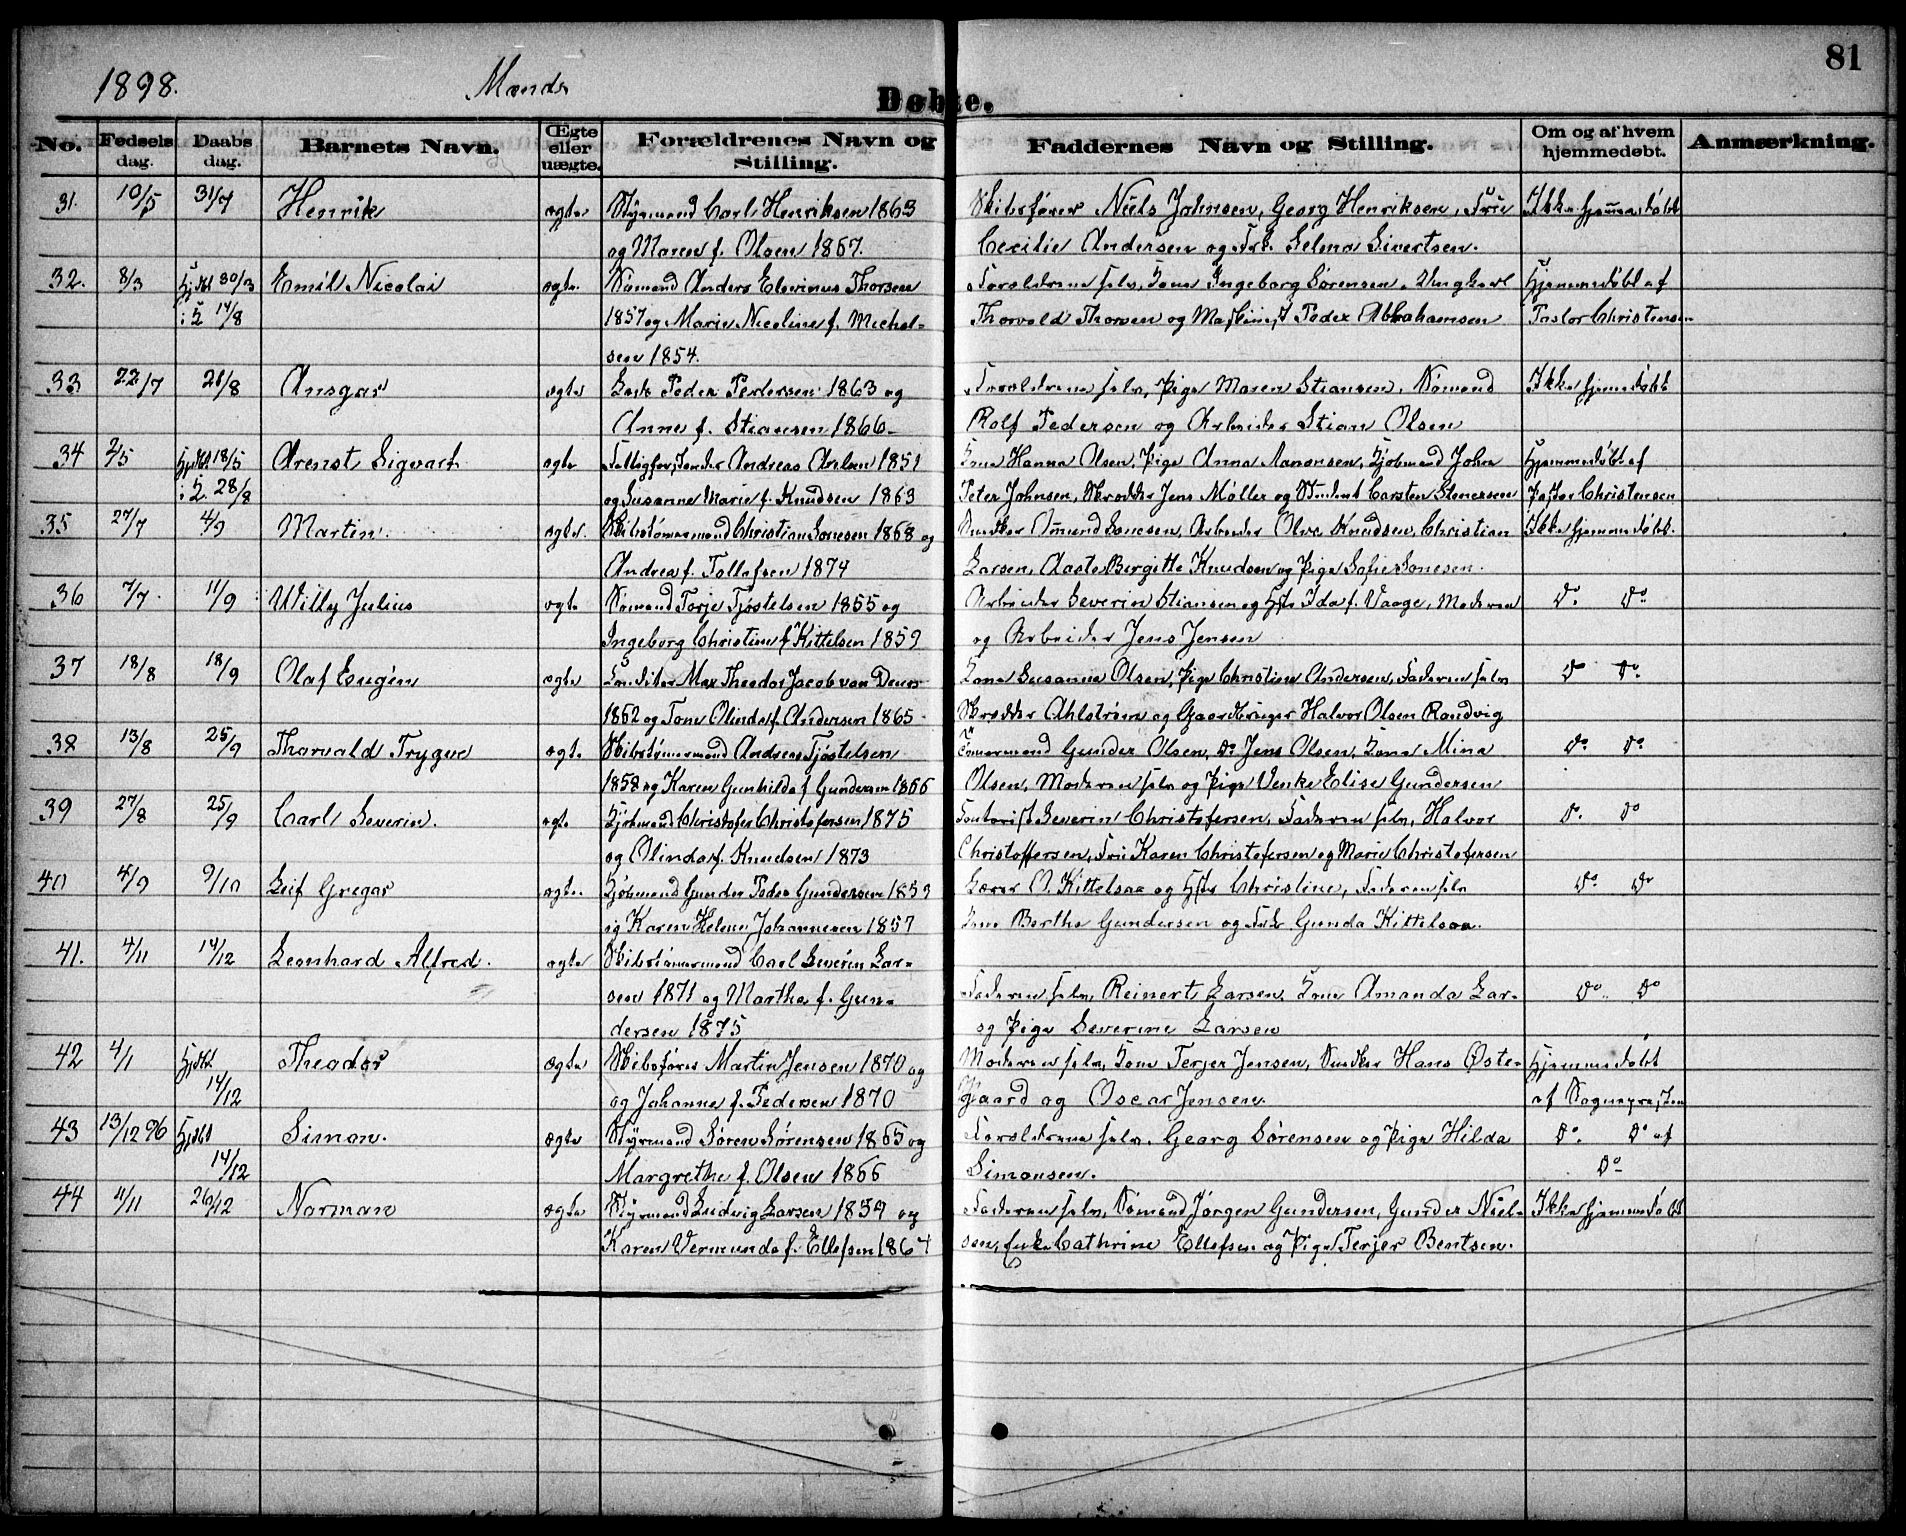 81
1898. Mænds
Døbte.
No. Fødsels dag. Daabs dag. Barnets Navn. Ægte eller uægte. Forældrenes Navn og Stilling. Faddernes Navn og Stilling. Om og af hvem hjemmedøbt. Anmærkning.
31. 10/5 31/7 Henrik ægte Styrmand Carl Henriksen 1863 Skibsfører Niels Johnsen, Georg Henriksen, Fru Ikke hjemmedøbt
og Maren f. Olsen 1867. Cecilie Andersen og Frk. Selma Sivertsen.
32. 8/3 Hjdbt 30/3 Emil Nicolai ægte. Sømand Anders Elevinus Thorsen Forældrene selv, Kone Ingeborg Sørensen, Ungkarl Hjemmedøbt af
i K 14/8 1857 og Marie Nicoline f. Michel- Thorvald Thorsen og Maskinist Peder Abrahamsen Pastor Christensen
sen 1854.
33 22/7 21/8 Ansgar ægte Lods Peder Pedersen 1863 og Forældrene selv, Pige Maren Stiansen, Sømand Ikke hjemmedøbt
Anne f. Stiansen 1866. Rolf Pedersen og Arbeider Stian Olsen
34 2/5 Hjdbt 18/5 Arenst Sigvart ægte Fattigforstander Andreas Arelsen 1851 Kone Hanna Olsen, Pige Anna Aanonsen, Kjøbmand John Hjemmedøbt af
i K. 28/8 og Susanne Marie f. Knudsen 1863 Peter Johnsen, Skrædder Jens Møller og Student Carsten Stenersen Pastor Christensen
35 27/7 4/9 Martin ægte. Skibstømmermand Christian Sonesen 1868 og Snedker Omund Sonesen, Arbeider Olve Knudsen, Christian Ikke hjemmedøbt.
Andrea f. Tollefsen 1874 Larsen, Aaste Birgitte Knudsen og Pige Sofie Sonesen.
36 7/7 11/9 Willy Julius ægte Sømand Torje Tjøstelsen 1855 og Arbeider Severin Stiansen og Hst. Ida f. Vaage, Moderen Do. Do.
Ingeborg Christine f. Kittelsen 1859 og Arbeider Jens Jensen
37 18/8 18/9 Olaf Eugén ægte Konditor Max Theodor Jacob van Deurs Kone Susanne Olsen, Pige Christine Andersen, Faderen selv Do Do.
1862 og Tone Olinde f. Andersen 1865 Skrædder Ahlstrøm og Gaardbruger Halvor Olsen Randvig
38 13/8 25/9 Tharvald Trygve ægte Skibstømmermand Andreas Tjøstelsen Tømmermand Gunder Olsen, Do Jens Olsen, Kone Mina Do. Do.
1858 og Karen Gunhilde f. Gundersen 1866 Olsen, Moderen selv og Pige Venke Elise Gundersen
39 27/8 25/9 Carl Severin. ægte Kjøbmand Christofer Christofersen 1875 Kontorist Severin Christofersen, Faderen selv, Halvor Do. Do
og Olinda f. Knudsen 1873 Christoffersen, Fru Karen Christofersen og Marie Christofersen
40 4/9 9/10 Leif Gregar ægte. Kjøbmand Gunder Peder Gundersen 1859 Lærer O. Kittelsaa og Hst Christine, Faderen selv Do. Do
og Karen Helene Johannesen 1857 Kone Berthe Gundersen og Frk Gunda Kittelsaa.
41. 4/11 14/12 Leonhard Alfred. ægte Skibstømmermand Carl Severin Lar-
sen 1871 og Marthe f. Gun- Faderen selv, Reinert Larsen, Kone Amanda Lar- Do. Do
dersen 1875 og Pige Severine Larsen
42 4/1 Hjdbt Theodor ægte Skibsfører Martin Jensen 1870 og Moderen selv, Kone Terjer Jensen, Snedker Hans Øster- Hjemmedøbt
14/12 og Johanne f. Pedersen 1870 gaard og Oscar Jensen. af Sognepræsten
43 13/12 96 Hjdbt Simon. ægte Styrmand Søren Sørensen 1865 og Forældrene selv, Georg Sørensen og Pige Hilda Do. Do af
14/12 Margrethe f. Olsen 1866 Simonsen. Do
44 4/11 26/12 Norman ægte Styrmand Ludvig Larsen 1859 og Faderen selv, Sømand Jørgen Gundersen, Gunder Niel- Ikke hjemmedøbt
Karen Vermunde f. Ellefsen 1864 sen, Enke Cathrine Ellefsen og Pige Terjer Bentsen.